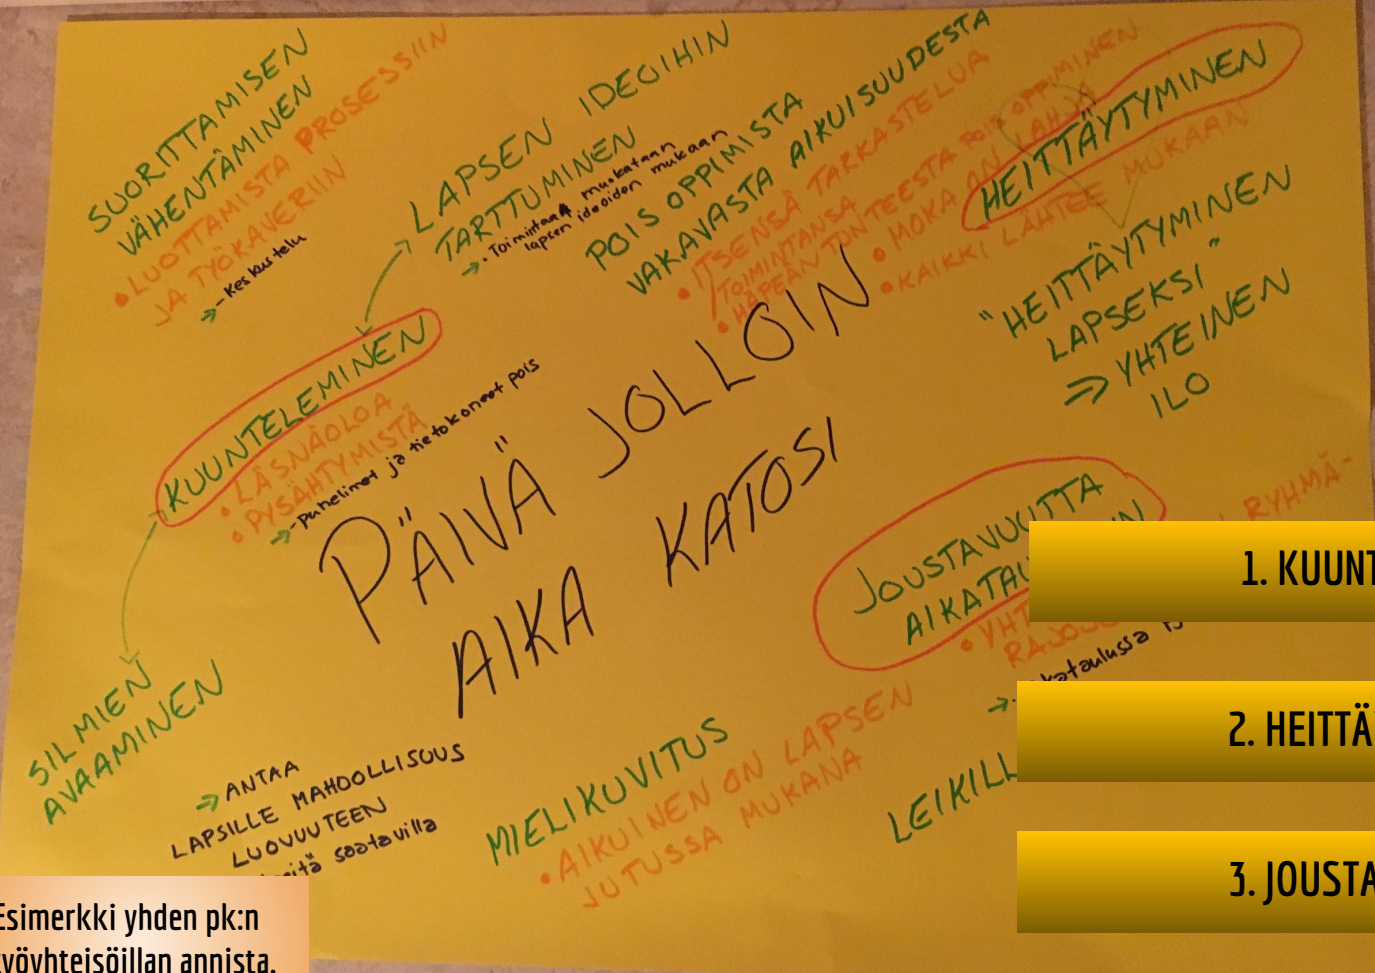 SUORITTAMISEN
VÄHENTÄMINEN
• LUOTTAMISTA PROSESSIIN
JA TYÖKAVERIIN
→ - Keskustelu
LAPSEN IDEOIHIN
TARTTUMINEN
→ • Toimintaa muokataan
lapsen ideoiden mukaan
POIS OPPIMISTA
VAKAVASTA AIKUISUUDESTA
• ITSENSÄ TARKASTELUA
/TOIMINTANSA
• HÄPEÄN TUNTEESTA POIS OPPIMINEN
• MOKA ON LAHJA
• KAIKKI LÄHTEE MUKAAN
HEITTÄYTYMINEN
"HEITTÄYTYMINEN
LAPSEKSI"
⇒ YHTEINEN
ILO
KUUNTELEMINEN
• LÄSNÄOLOA
• PYSÄHTYMISTÄ
→ - Puhelimet ja tietokoneet pois
PÄIVÄ JOLLOIN
AIKA KATOSI
JOUSTAVUUTTA
AIKATAU
RYHMÄ-
• YHT
RAJOJ
kataulussa
SILMIEN
AVAAMINEN
→ ANTAA
LAPSILLE MAHDOLLISUUS
LUOVUUTEEN
saatavilla
MIELIKUVITUS
• AIKUINEN ON LAPSEN
JUTUSSA MUKANA
LEIKILL
1. KUUNT
2. HEITTÄ
3. JOUSTA
Esimerkki yhden pk:n
työyhteisöillan annista.